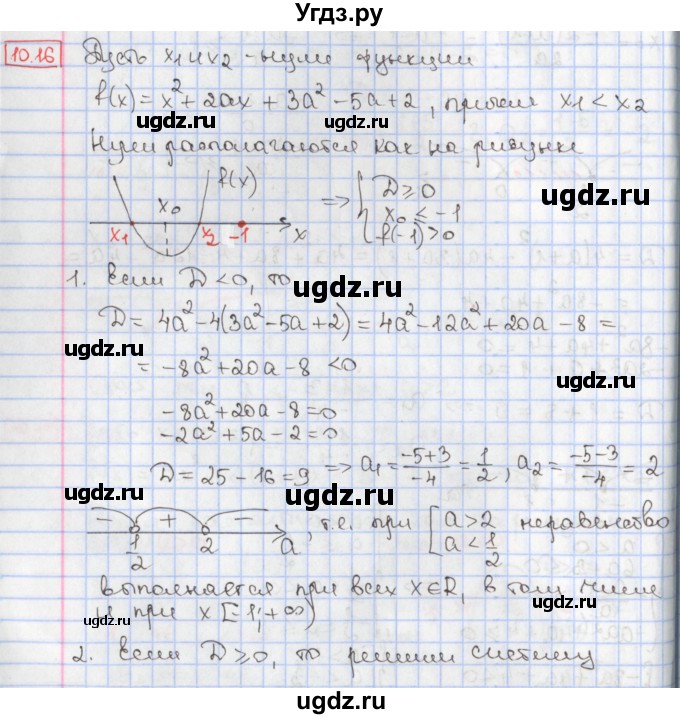 Угдз.ру
10.16 Пусть x₁ и x₂ - нули функции
f(x) = x² + 2ax + 3a² - 5a + 2, причем x₁ < x₂
ugdz.ru ugdz.ru
Нули располагаются как на рисунке
f(x) x₀ x₁ x₂ -1 x
=> { D ≥ 0
x₀ ≤ -1
f(-1) > 0
ugdz.ru
1. Если D < 0, то
ugdz.ru
D = 4a² - 4(3a² - 5a + 2) = 4a² - 12a² + 20a - 8 =
ugdz.ru
= -8a² + 20a - 8 < 0
ugdz.ru
-8a² + 20a - 8 = 0
-2a² + 5a - 2 = 0
ugdz.ru
D = 25 - 16 = 9 => a₁ = (-5+3)/(-4) = 1/2, a₂ = (-5-3)/(-4) = 2
ugdz.ru
- + - 1/2 2 a, т.е. при [ a > 2 неравенство
a < 1/2
ugdz.ru
выполняется при всех x∈R, в том числе
ugdz.ru
и при x [-1; +∞)
ugdz.ru
2. Если D ≥ 0, то решим систему
ugdz.ru